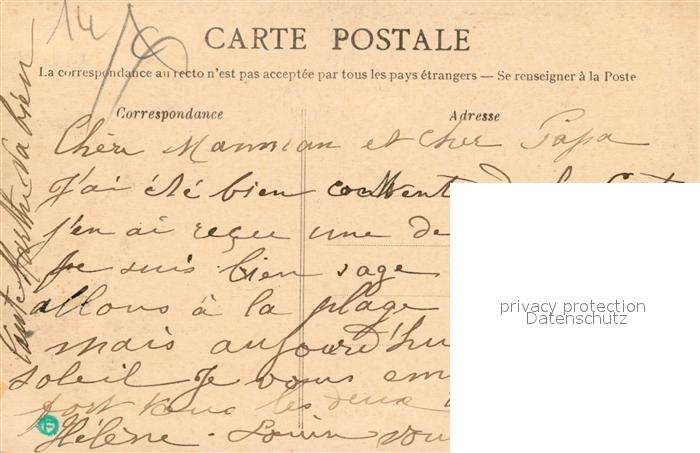 14
CARTE POSTALE
La correspondance au recto n'est pas acceptée par tous les pays étrangers — Se renseigner à la Poste
Correspondance
Adresse
Chère Manman et cher Papa
J'ai été bien content de la
j'en ai reçu une de
je suis bien sage
allons à la plage
mais aujourd'hu
soleil Je vous em
fort tous les deux
Hélène - Louis vou
tante Marthe va bien
privacy protection
Datenschutz